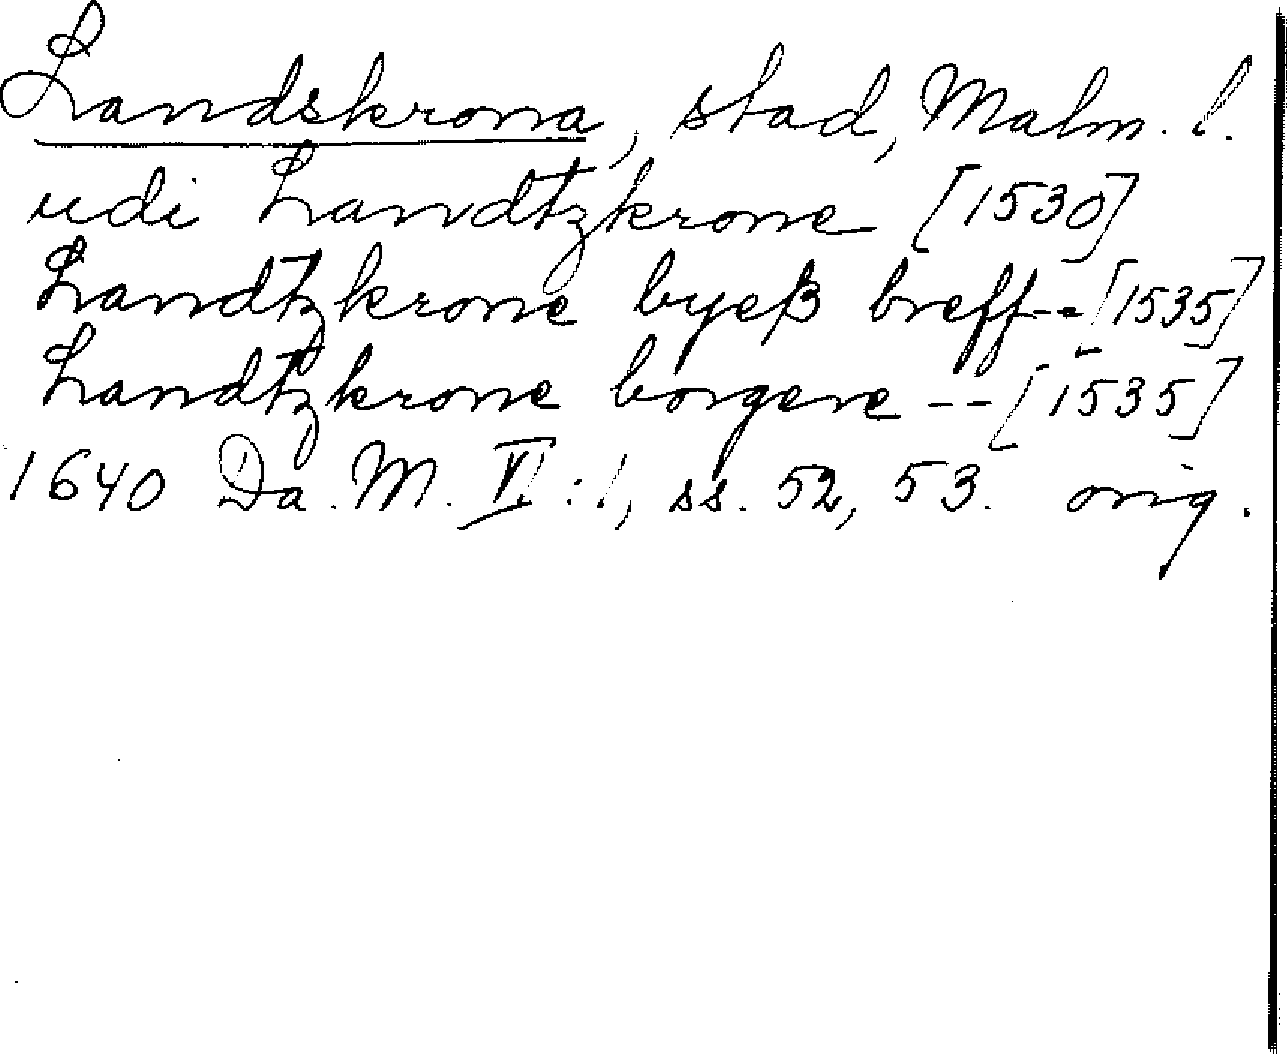 Landskrona, stad, Malm. l.
udi Landtzkrone [1530]
Landtzkrone byeß breff--[1535]
Landtzkrone borgere --[1535]
1640 Da. M. VI:1, ss. 52, 53. orig.